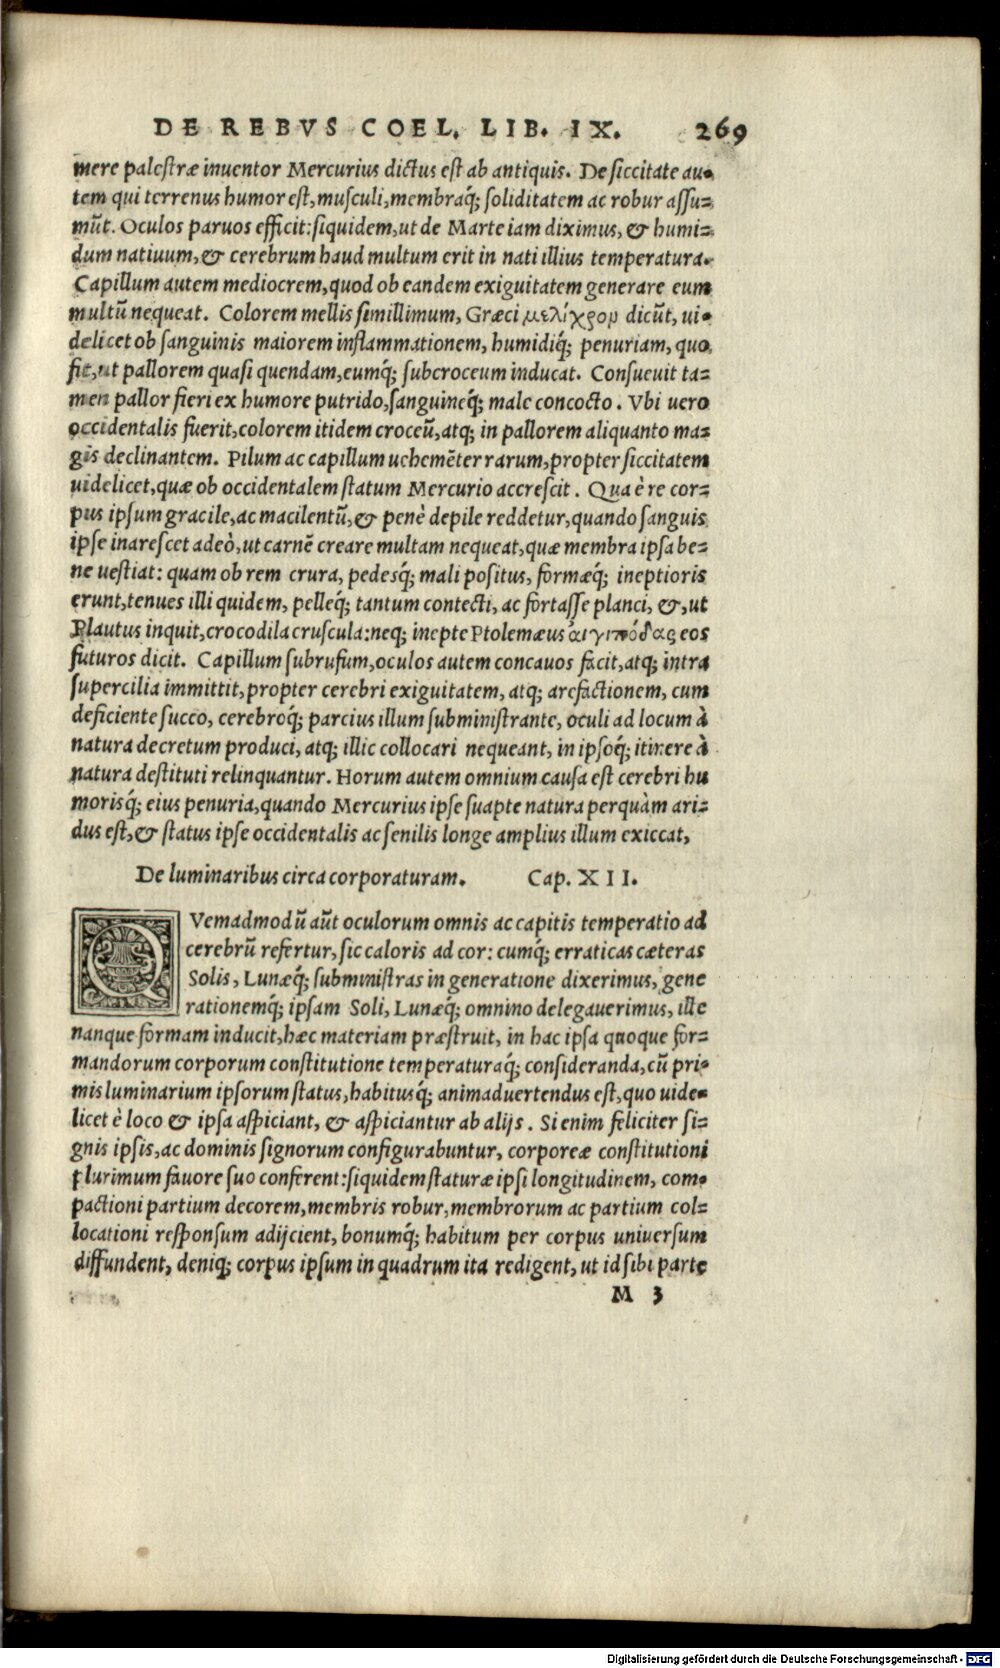 DE REBVS COEL. LIB. IX. 269
mere palestræ inuentor Mercurius dictus est ab antiquis. De siccitate au-
tem qui terrenus humor est, musculi, membraq́; soliditatem ac robur assu-
mūt. Oculos paruos efficit: siquidem, ut de Marte iam diximus, & humi-
dum natiuum, & cerebrum haud multum erit in nati illius temperatura.
Capillum autem mediocrem, quod ob eandem exiguitatem generare eum
multū nequeat. Colorem mellis simillimum, Græci μελίχρον dicūt, ui-
delicet ob sanguinis maiorem inflammationem, humidiq́; penuriam, quo
fit, ut pallorem quasi quendam, eumq́; subcroceum inducat. Consueuit ta-
men pallor fieri ex humore putrido, sanguineq́; male concocto. Vbi uero
occidentalis fuerit, colorem itidem croceū, atq; in pallorem aliquanto ma-
gis declinantem. Pilum ac capillum uehemēter rarum, propter siccitatem
uidelicet, quæ ob occidentalem statum Mercurio accrescit. Qua è re cor-
pus ipsum gracile, ac macilentū, & penè depile reddetur, quando sanguis
ipse inarescet adeò, ut carnē creare multam nequeat, quæ membra ipsa be-
ne uestiat: quam ob rem crura, pedesq́; mali positus, formæq́; ineptioris
erunt, tenues illi quidem, pelleq́; tantum contecti, ac fortasse planci, &, ut
Plautus inquit, crocodila cruscula: neq; inepte Ptolemæus αἰγιπόδας eos
futuros dicit. Capillum subrufum, oculos autem concauos facit, atq; intra
supercilia immittit, propter cerebri exiguitatem, atq; arefactionem, cum
deficiente succo, cerebroq́; parcius illum subministrante, oculi ad locum à
natura decretum produci, atq; illic collocari nequeant, in ipsoq́; itinere à
natura destituti relinquantur. Horum autem omnium causa est cerebri hu
morisq́; eius penuria, quando Mercurius ipse suapte natura perquàm ari-
dus est, & status ipse occidentalis ac senilis longe amplius illum exiccat,
De luminaribus circa corporaturam. Cap. XII.
QVemadmodū aūt oculorum omnis ac capitis temperatio ad
cerebrū refertur, sic caloris ad cor: cumq́; erraticas cæteras
Solis, Lunæq́; subministras in generatione dixerimus, gene
rationemq́; ipsam Soli, Lunæq́; omnino delegauerimus, ille
nanque formam inducit, hæc materiam præstruit, in hac ipsa quoque for-
mandorum corporum constitutione temperaturaq́; consideranda, cū pri-
mis luminarium ipsorum status, habitusq́; animaduertendus est, quo uide-
licet è loco & ipsa aspiciant, & aspiciantur ab alijs. Si enim feliciter si-
gnis ipsis, ac dominis signorum configurabuntur, corporeæ constitutioni
plurimum fauore suo conferent: siquidem staturæ ipsi longitudinem, com-
pactioni partium decorem, membris robur, membrorum ac partium col-
locationi responsum adijcient, bonumq́; habitum per corpus uniuersum
diffundent, deniq; corpus ipsum in quadrum ita redigent, ut id sibi parte
M 3
Digitalisierung gefördert durch die Deutsche Forschungsgemeinschaft - DFG